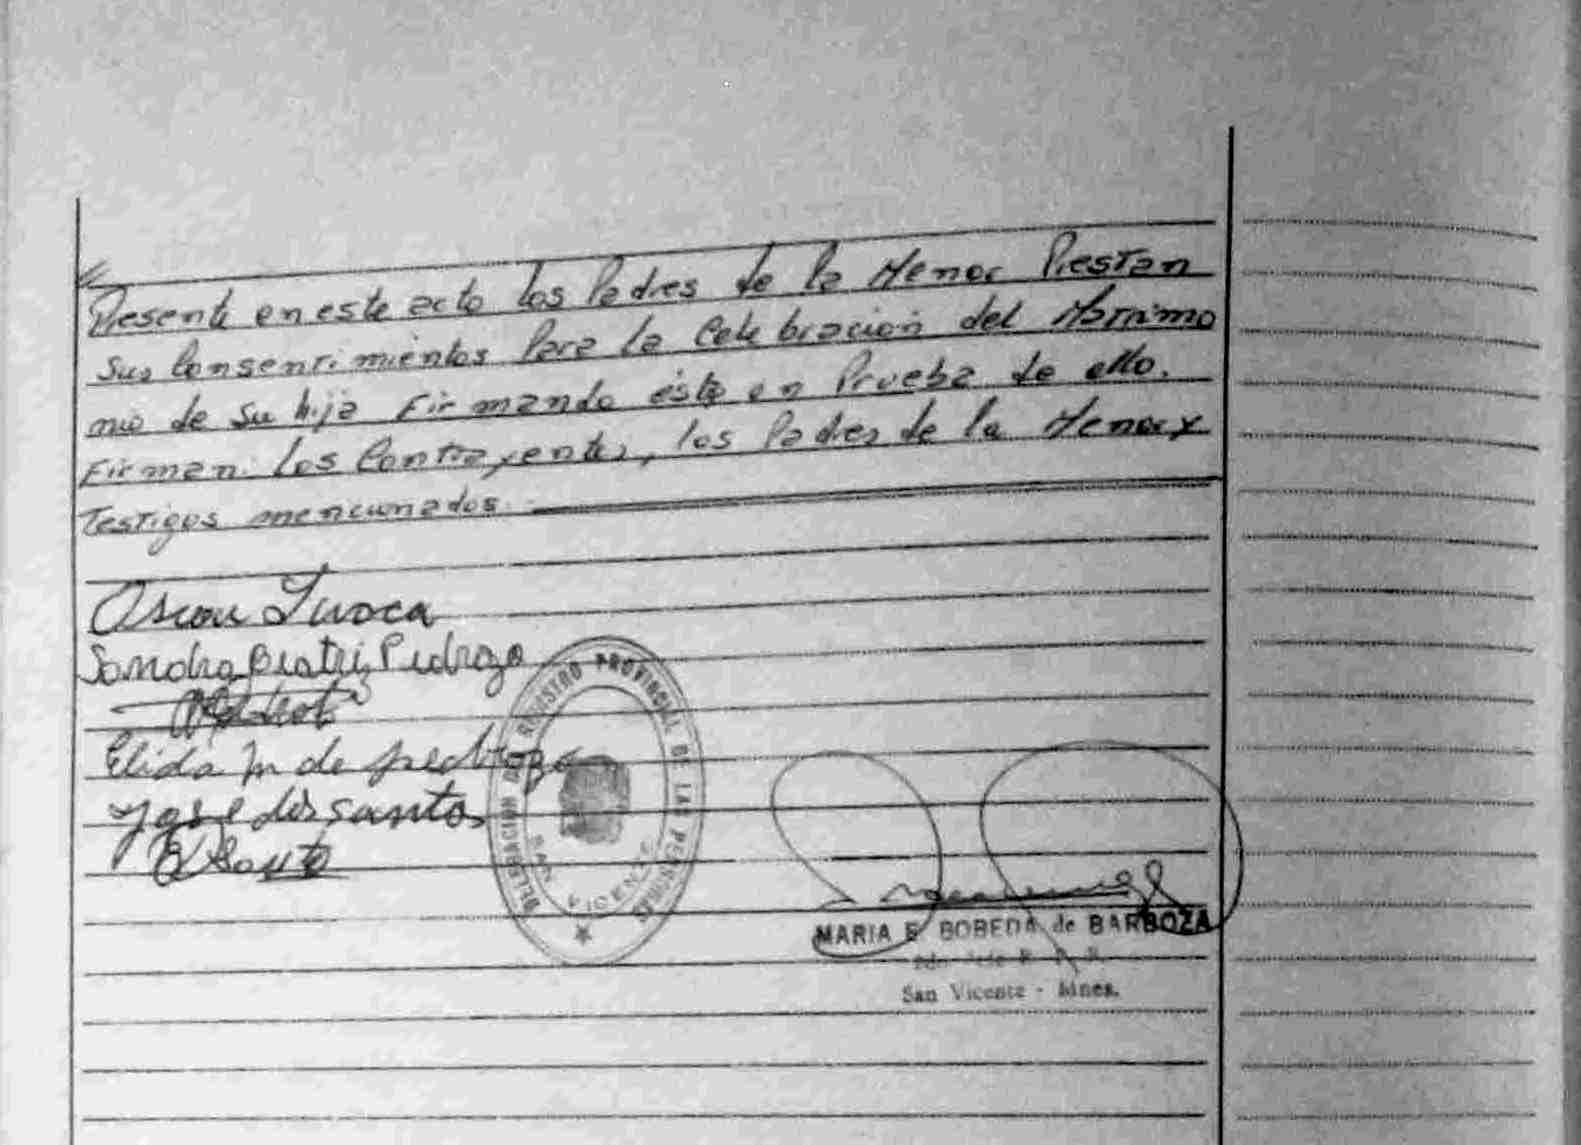 Presente en este acto los Padres de la Menor Prestan
sus Consentimientos Para la Celebración del Matrimo
nio de su hija Firmando éste en Prueba de ello.
Firman: los Contrayentes, los Padres de la Menor y
Testigos mencionados.
Oscar
Sandra Beatriz Pedrozo
Elida M de pedrozo
Jose dos santos
DELEGACION REGISTRO PROVINCIAL DE LAS PERSONAS
SAN VICENTE
MARIA E. BOBEDA de BARBOZA
San Vicente - Mnes.